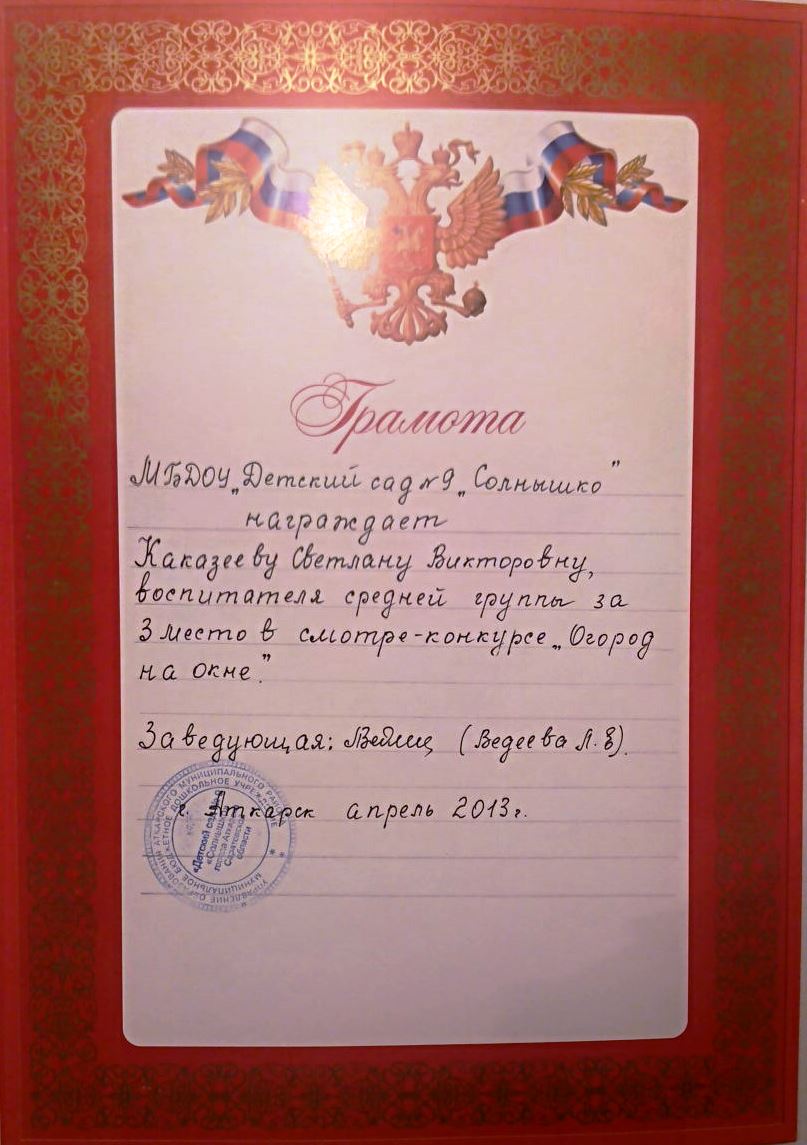 Грамота
МБДОУ „Детский сад №9 „Солнышко”
награждает
Каказееву Светлану Викторовну,
воспитателя средней группы за
3 место в смотре-конкурсе „Огород
на окне”.
Заведующая: (Ведеева Л. В).
г. Аткарск апрель 2013г.
АТКАРСКОГО МУНИЦИПАЛЬНОГО
МУНИЦИПАЛЬНОЕ БЮДЖЕТНОЕ ДОШКОЛЬНОЕ УЧРЕЖДЕНИЕ
«Детский
«Солнышко»
города Аткарска
Саратовской
области